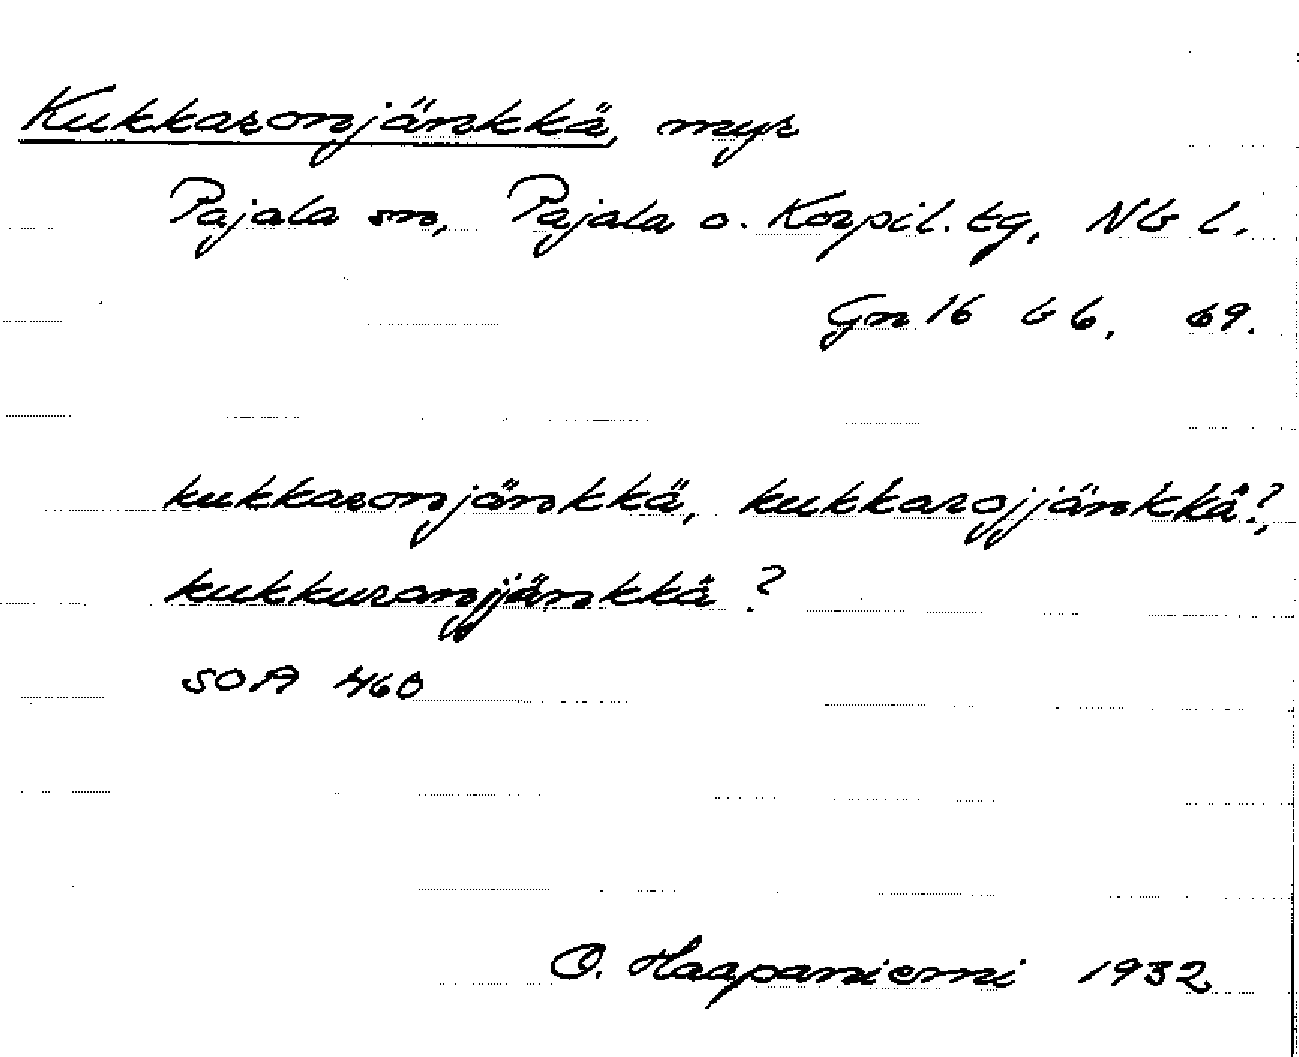 Kukkaronjänkkä, myr
Pajala sn, Pajala o. Korpil. tg, Nb l.
Gn 16 b 6, 69.
kukkaronjänkkä, kukkarojjänkkä?,
kukkuranjjänkkä?
SOA 460
O. Haapaniemi 1932